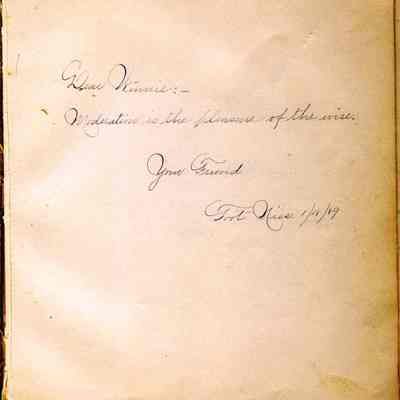 Dear Winnie:-
Moderation is the pleasure of the wise.
Your Friend